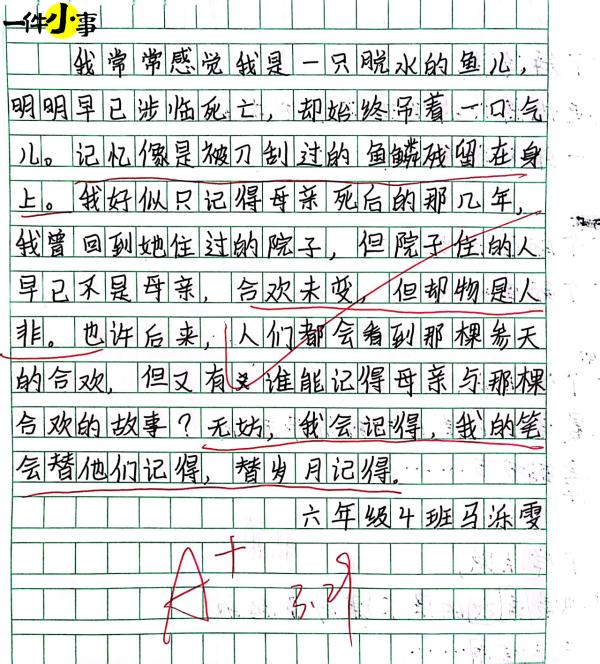 一件小事
我常常感觉我是一只脱水的鱼儿，
明明早已涉临死亡，却始终吊着一口气
儿。记忆像是被刀刮过的鱼鳞残留在身
上。我好似只记得母亲死后的那几年，
我曾回到她住过的院子，但院子住的人
早已不是母亲，合欢未变，但却物是人
非。也许后来，人们都会看到那棵参天
的合欢，但又有谁能记得母亲与那棵
合欢的故事？无妨，我会记得，我的笔
会替他们记得，替岁月记得。
六年级4班马泺雯
A+
3.29